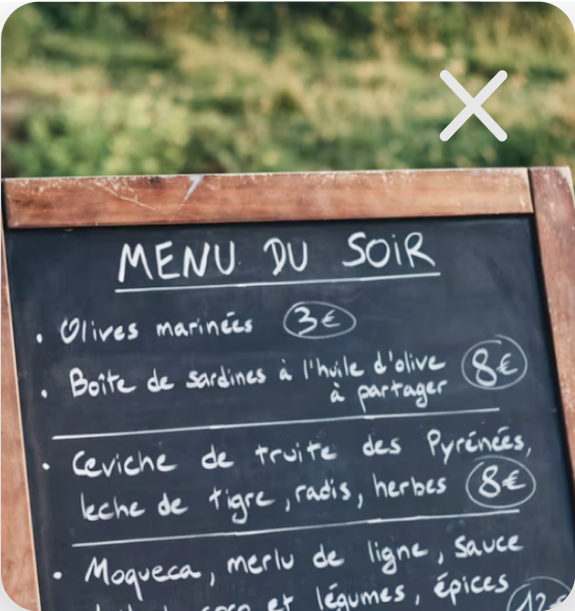 MENU DU SOIR
• Olives marinées 3€
• Boîte de sardines à l'huile d'olive 8€
à partager
• Ceviche de truite des Pyrénées,
leche de tigre, radis, herbes 8€
• Moqueca, merlu de ligne, sauce
coco et légumes, épices